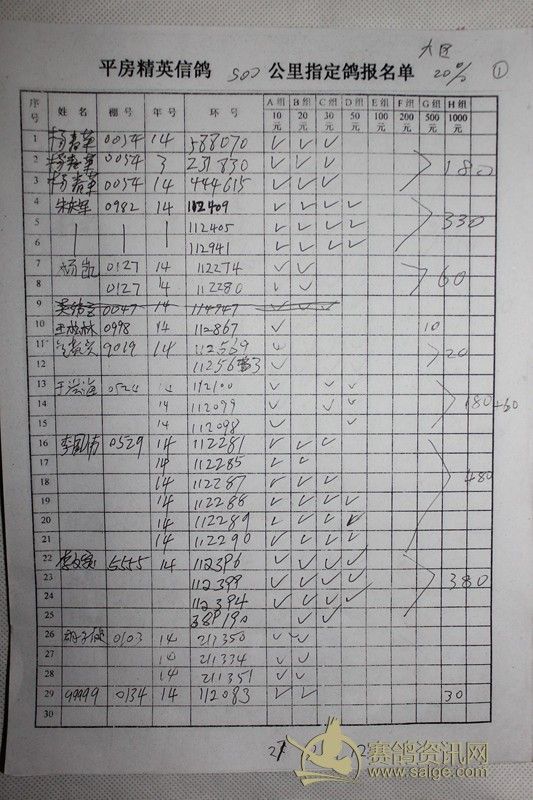 大区
平房精英信鸽 500 公里指定鸽报名单 20% ①
序号 姓名 棚号 年号 环号 A组10元 B组20元 C组30元 D组50元 E组100元 F组200元 G组500元 H组1000元
1 杨春革 0054 14 588070 ✓ ✓ ✓
2 杨春革 0054 3 231830 ✓ ✓ ✓ 180
3 杨春革 0054 14 444615 ✓ ✓ ✓
4 0982 14 112409 ✓ ✓ ✓ ✓
5 112405 ✓ ✓ ✓ ✓ 330
6 112941 ✓ ✓ ✓ ✓
7 杨凯 0127 14 112274 ✓ ✓
8 0127 14 112280 ✓ ✓ 60
9 0047 14 114747 ✓ ✓ ✓
10 王松林 0998 14 112867 ✓ 10
11 9019 14 112569 ✓
12 ✓ 20
13 于洪海 0524 14 112100 ✓ ✓ ✓
14 14 112099 ✓ ✓ ✓ 180
15 14 112098 ✓ ✓
16 0529 14 112281 ✓ ✓ ✓
17 14 112285 ✓ ✓
18 14 112287 ✓ ✓ ✓ 480
19 14 112288 ✓ ✓ ✓ ✓
20 14 112289 ✓ ✓ ✓ ✓
21 14 112290 ✓ ✓ ✓ ✓
22 5555 14 112396 ✓ ✓ ✓ ✓
23 112399 ✓ ✓ ✓ ✓ 380
24 112394 ✓ ✓ ✓ ✓
25 ✓ ✓
26 0103 14 211350 ✓ ✓
27 14 211334 ✓ ✓
28 14 211351 ✓ ✓
29 99999 0134 14 112083 ✓ ✓ 30
30
赛鸽资讯网
www.saige.com